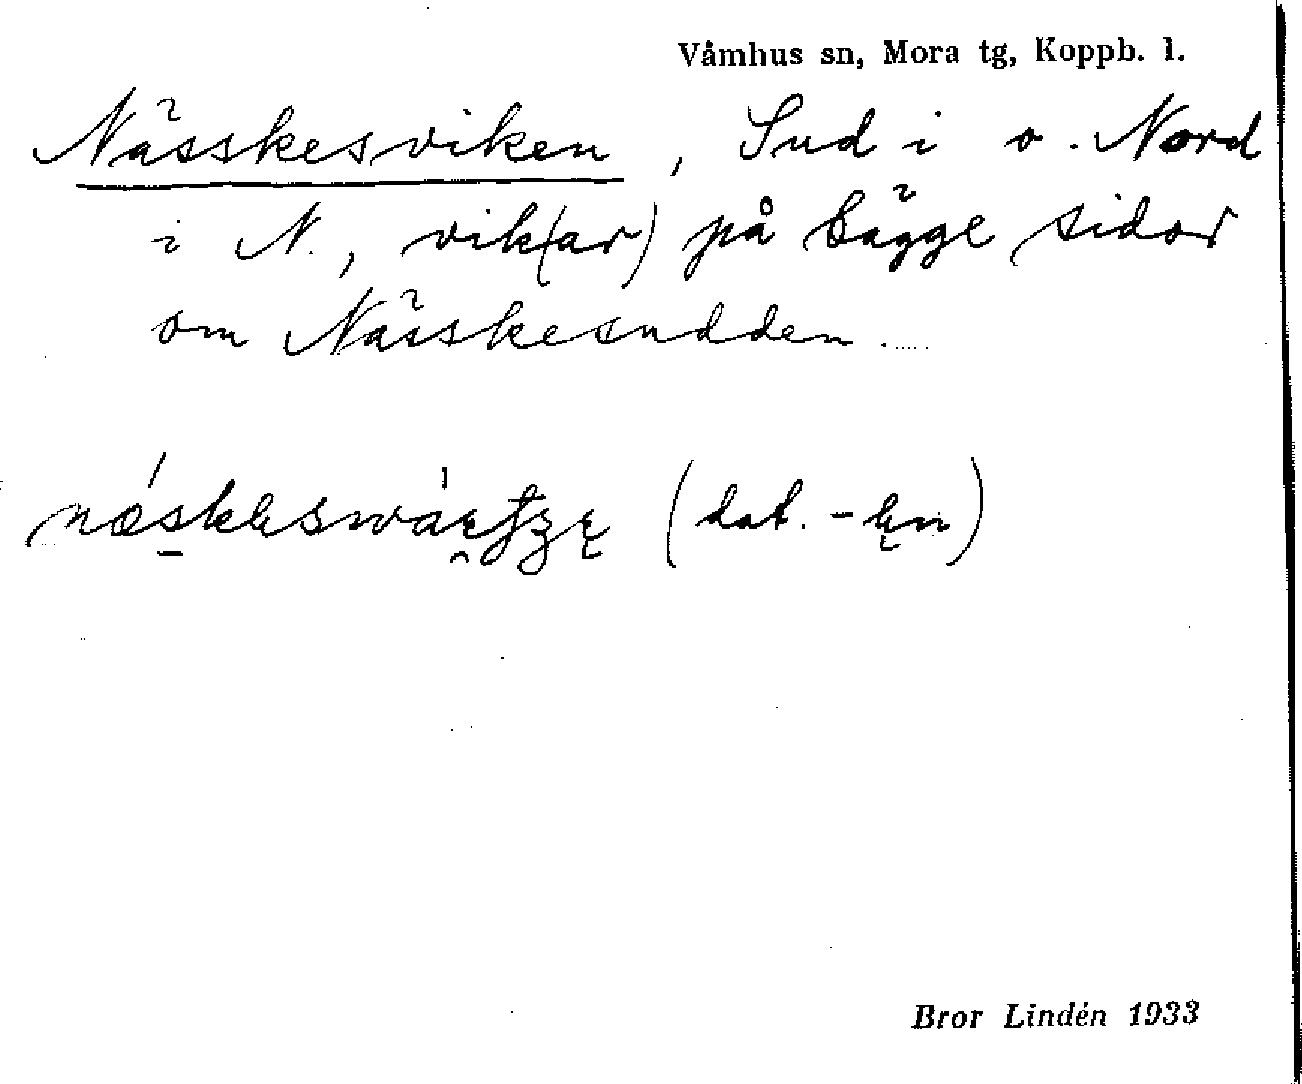 Våmhus sn, Mora tg, Koppb. l.
Nässkesviken, Sud i o. Nord
i N., vik(ar) på bägge sidor
om Nässkesudden.
(dat. -en)
Bror Lindén 1933